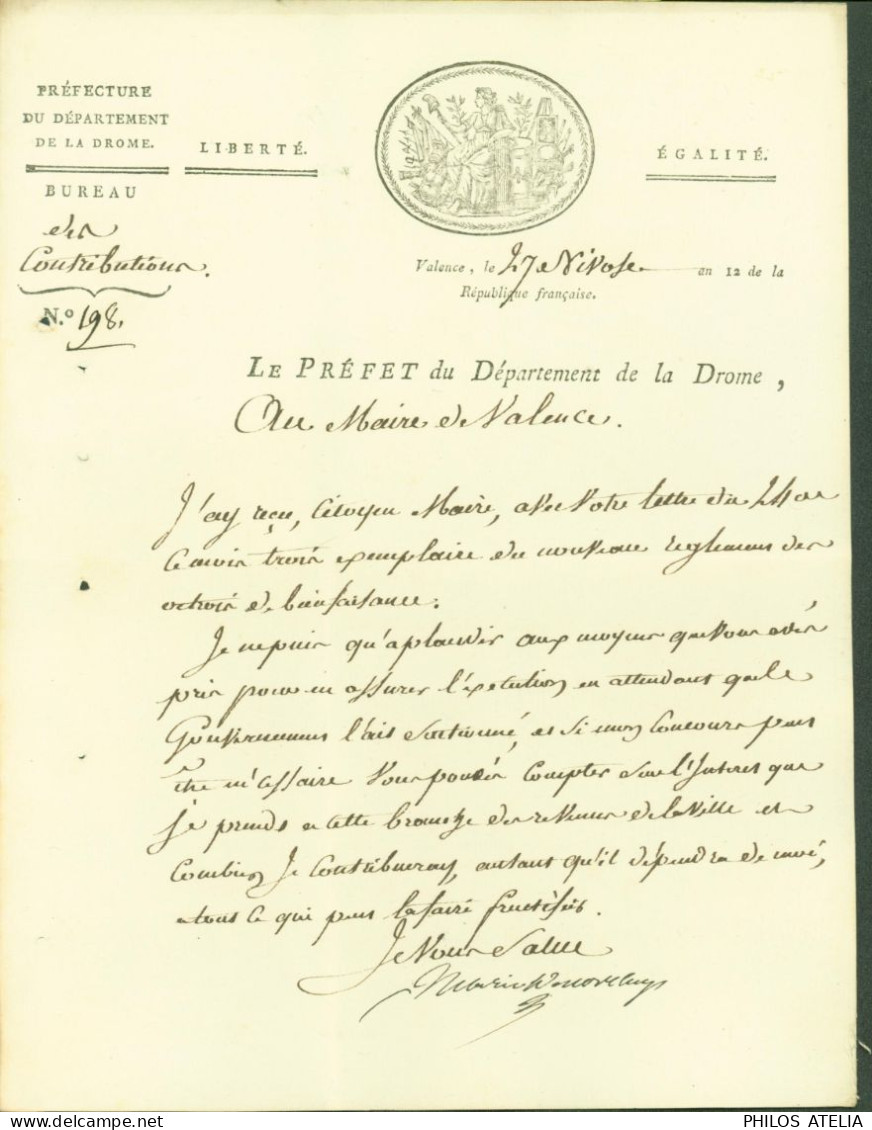 PRÉFECTURE
DU DÉPARTEMENT
DE LA DROME.
LIBERTÉ.
ÉGALITÉ.
BUREAU
des
Contributions.
N.º 198.
Valence, le 27 e Nivose an 12 de la
République française.
LE PRÉFET du Département de la Drome,
Au Maire de Valence.
J'ay reçu, Citoyen Maire, avec votre lettre du 24 de
ce mois trois exemplaire du nouveau reglement des
octrois de bienfaisance.
Je ne puis qu'aplaudir aux moyens que vous avés
pris pour en assurer l'exécution en attendant que le
Gouvernement l'ait sanctionné, et si mon concours peut
être nécessaire vous pouvés compter sur l'Interet que
je prends a cette branche des revenus de la ville et
combien je contribueray, autant qu'il dépendra de moi,
a tout ce qui peut la faire fructifier.
Je vous salue